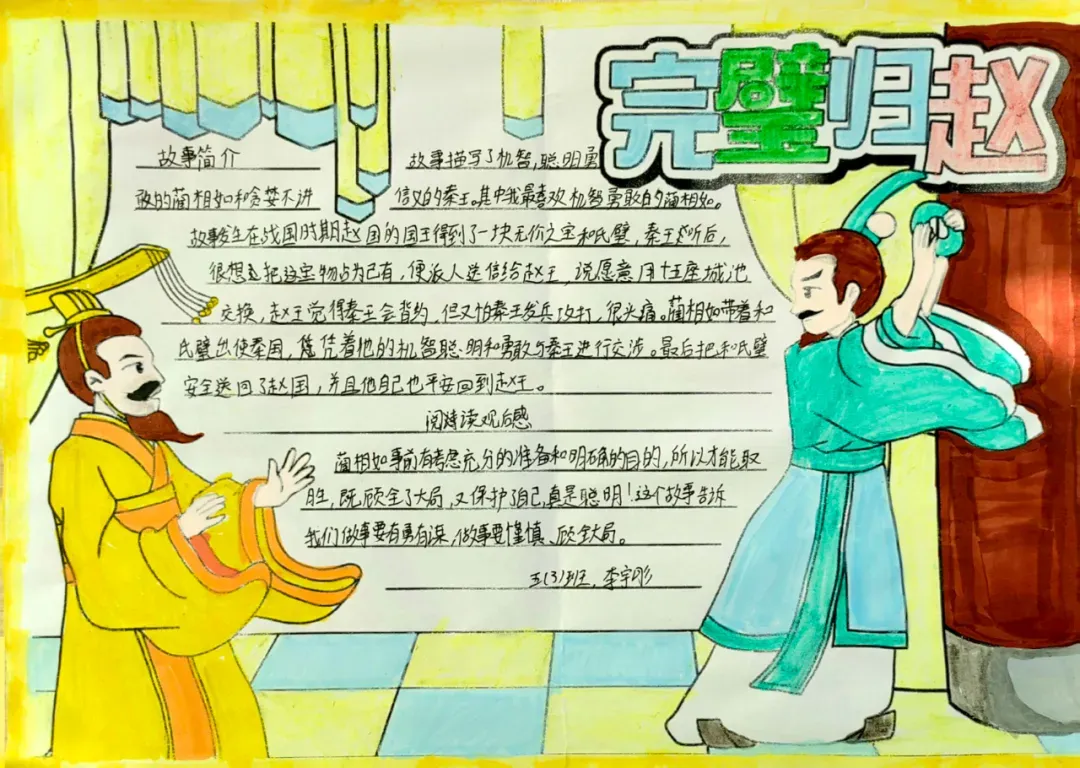 完璧归赵
故事简介
故事描写了机智,聪明勇
敢的蔺相如和贪婪不讲
信义的秦王。其中我最喜欢机智勇敢的蔺相如。
故事发生在战国时期赵国的国王得到了一块无价之宝和氏璧,秦王听后,
很想把这宝物占为己有,便派人送信给赵王,说愿意用十五座城池
交换,赵王觉得秦王会背约,但又怕秦王发兵攻打,很头痛。蔺相如带着和
氏璧出使秦国,凭着他的机智聪明和勇敢与秦王进行交涉。最后把和氏璧
安全送回了赵国,并且他自己也平安回到赵王。
阅读观后感
蔺相如事前有考虑充分的准备和明确的目的,所以才能取
胜,既顾全了大局,又保护了自己,真是聪明!这个故事告诉
我们做事要有勇有谋,做事要谨慎、顾全大局。
五(3)班,李宇彤